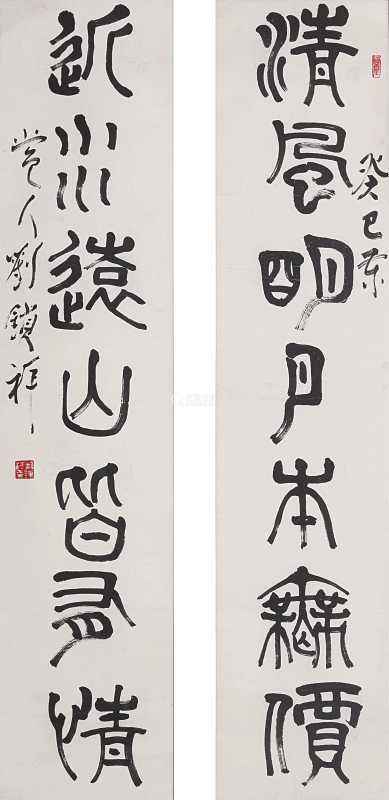 清風明月本無價
癸巳東
近水遠山皆有情
劉鎖祥